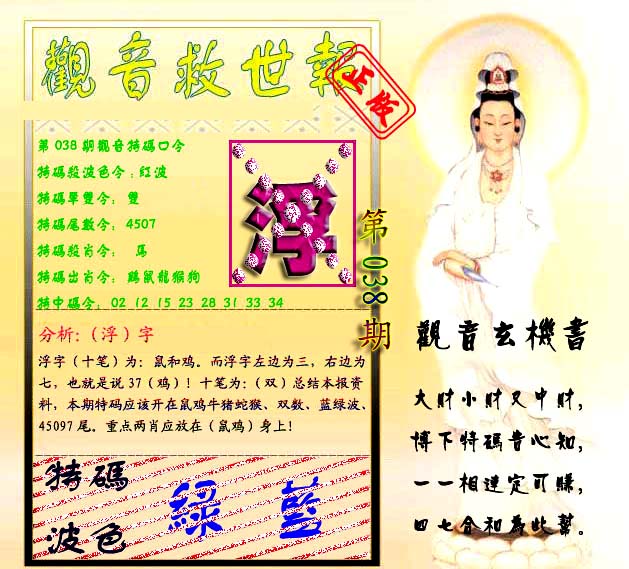 觀音救世報
正版
第 038 期觀音特碼口令
特碼殺波色令:紅波
特碼單雙令: 雙
特碼尾數令: 4507
特碼殺肖令: 馬
特碼出肖令: 鷄鼠龍猴狗
特中碼令: 02 12 15 23 28 31 33 34
浮
第 038 期
分析:(浮)字
浮字(十笔)为:鼠和鸡。而浮字左边为三,右边为
七,也就是说 37(鸡)!十笔为:(双)总结本报资
料,本期特码应该开在鼠鸡牛猪蛇猴、双数、蓝绿波、
45097 尾。重点两肖应放在(鼠鸡)身上!
特碼
波色
綠 藍
觀音玄機書
大財小財又中財,
博下特碼音心知,
一一相連定可賺,
四七合和為此幫。